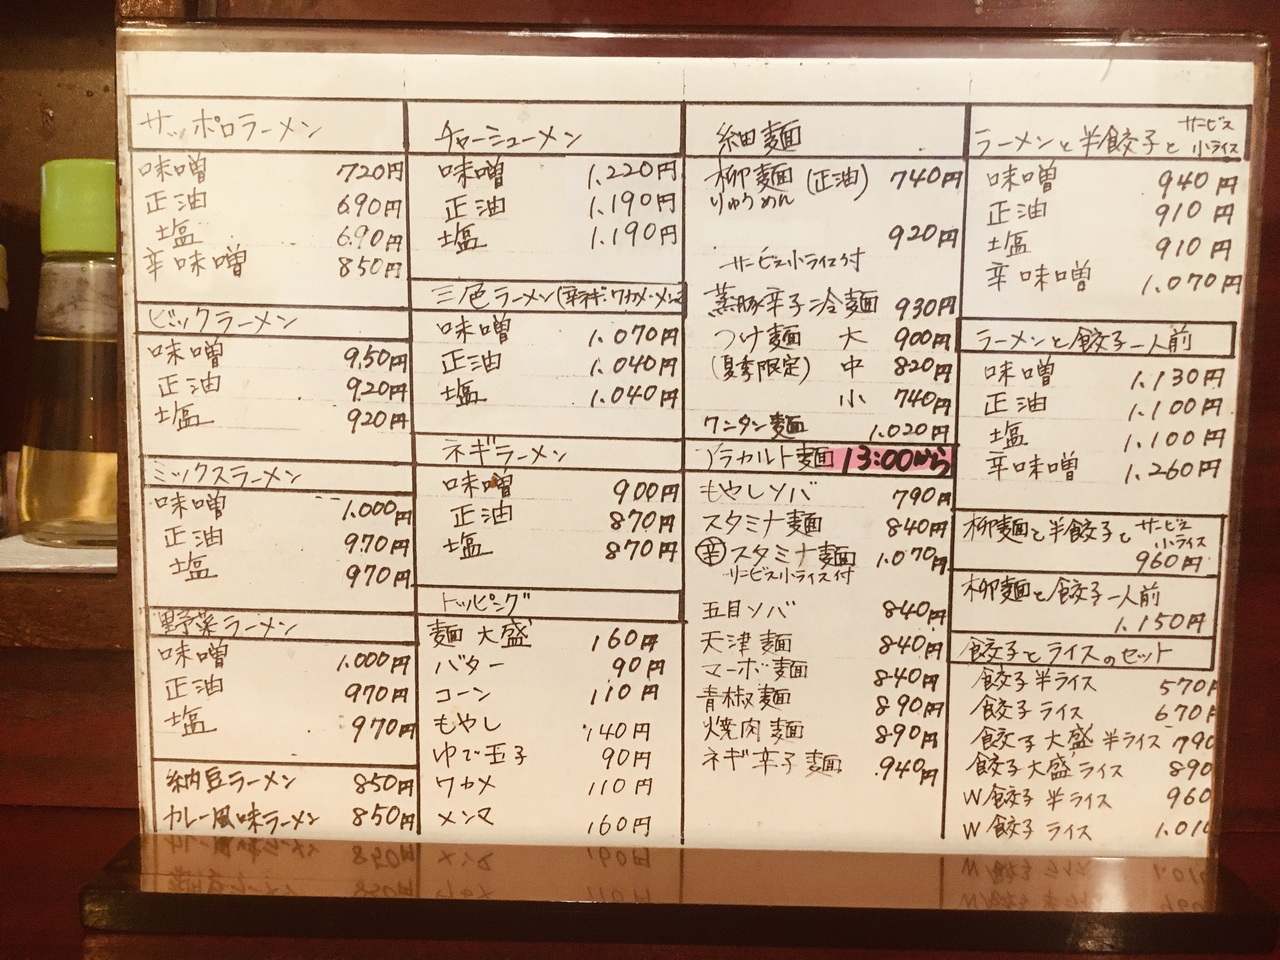 サッポロラーメン
味噌 720円
正油 690円
塩 690円
辛味噌 850円
ビックラーメン
味噌 950円
正油 920円
塩 920円
ミックスラーメン
味噌 1.000円
正油 970円
塩 970円
野菜ラーメン
味噌 1.000円
正油 970円
塩 970円
納豆ラーメン 850円
カレー風味ラーメン 850円
チャーシューメン
味噌 1.220円
正油 1.190円
塩 1.190円
三色ラーメン(辛ネギ・ワカメ・メンマ
味噌 1.070円
正油 1.040円
塩 1.040円
ネギラーメン
味噌 900円
正油 870円
塩 870円
トッピング
麺大盛 160円
バター 90円
コーン 110円
もやし 140円
ゆで玉子 90円
ワカメ 110円
メンマ 160円
細麺
柳麺(正油) 740円
りゅうめん
920円
サービス小ライス付
蒸豚辛子冷麺 930円
つけ麺 大 900円
(夏季限定) 中 820円
小 740円
ワンタン麺 1.020円
アラカルト麺 13:00から
もやしソバ 790円
スタミナ麺 840円
辛スタミナ麺 1.070円
サービス小ライス付
五目ソバ 840円
天津麺 840円
マーボ麺 840円
青椒麺 890円
焼肉麺 890円
ネギ辛子麺 940円
ラーメンと半餃子とサービス小ライス
味噌 940円
正油 910円
塩 910円
辛味噌 1.070円
ラーメンと餃子一人前
味噌 1.130円
正油 1.100円
塩 1.100円
辛味噌 1.260円
柳麺と半餃子とサービス小ライス
960円
柳麺と餃子一人前
1.150円
餃子とライスのセット
餃子半ライス 570円
餃子ライス 670円
餃子大盛半ライス 790
餃子大盛ライス 890
W餃子半ライス 960
W餃子ライス 1.010